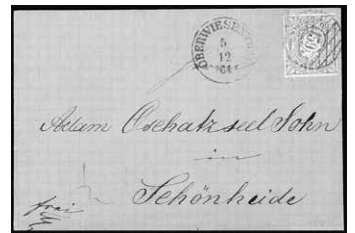 OBERWIESENTHAL
5
12
64
Adam Oschatz seel Sohn
in
Schönheide
frei